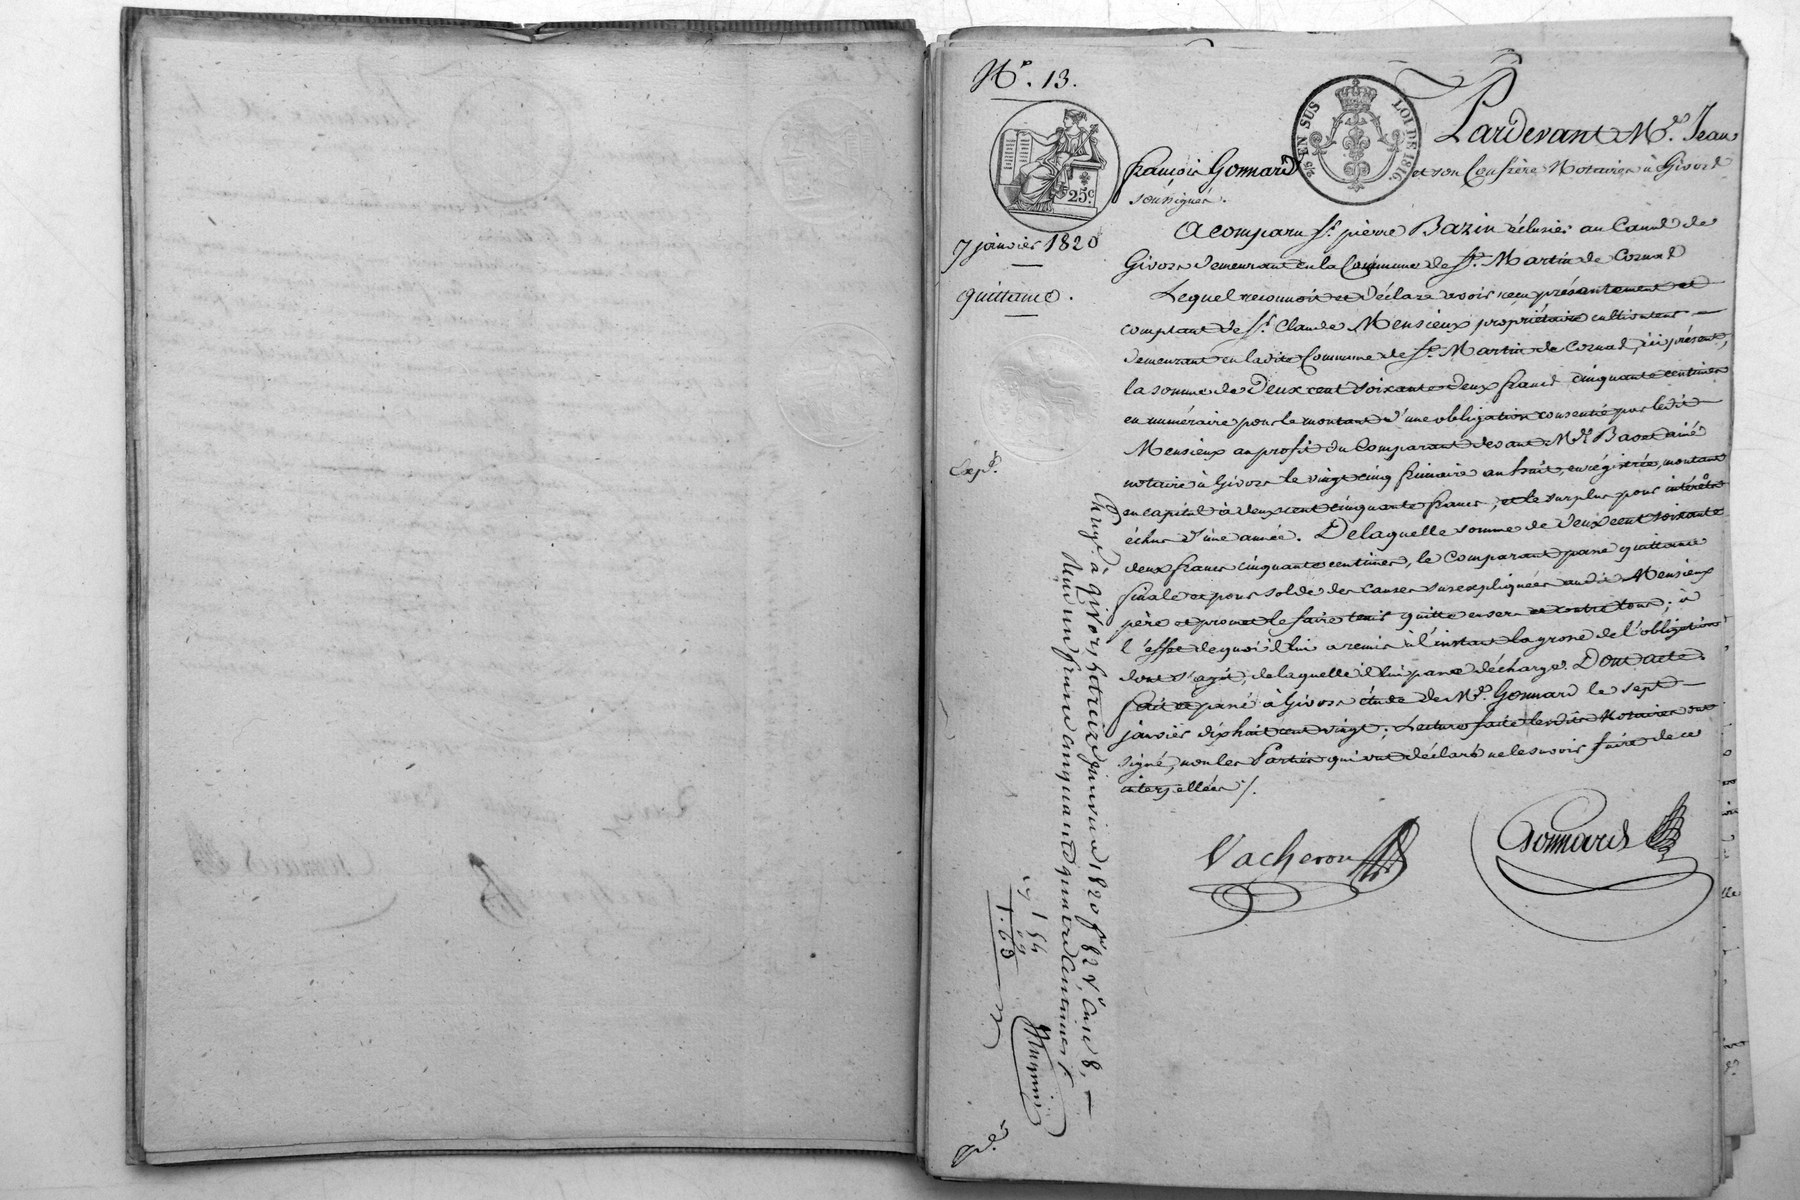 N°. 13.
5/c EN SUS LOI DE 1816.
25c.
Pardevant Me. Jean
françois Gonnard et son Confrère Notaires à Givors
soussignés.
7 janvier 1820
quittance.
A comparu Sr. pierre Bazin éclusier au Canal de
Givors demeurant en la Commune de St. Martin de Cornas
Lequel reconnoit et déclare avoir reçu présentement et
comptant de Sr. Claude Mensieux propriétaire cultivateur
demeurant en ladite Commune de St. Martin de Cornas, ici présent,
la somme de Deux cent soixante deux francs cinquante centimes
en numéraire pour le montant d'une obligation consentie par ledit
Mensieux au profit du Comparant devant Me. Baost ainé
Expé.
notaire à Givors le vingt cinq frimaire an huit, enrégistrée, montant
en capital à deux cent cinquante francs, et le surplus pour intérêts
échus d'une année. De laquelle somme de deux cent soixante
deux francs cinquante centimes, le Comparant passe quittance
finale et pour solde des causes susexpliquées audit Mensieux
père et promet le faire tenir quitte envers et contre tous; à
l'effet de quoi il lui a remis à l'instant la grosse de l'obligation
dont s'agit, de laquelle il lui passe décharge. Dont acte.
fait et passé à Givors étude de Me. Gonnard le sept
janvier dix huit cent vingt; Lecture faite lesdits Notaires ont
signé, non les Parties qui ont déclaré ne le savoir faire de ce
interpellées /.
Vacheron
Gonnard
Enregé. à Givors, le treize janvier 1820 fo. 82 Vo. Case 8,
Reçu un franc cinquante quatre centimes
1 54
1.63